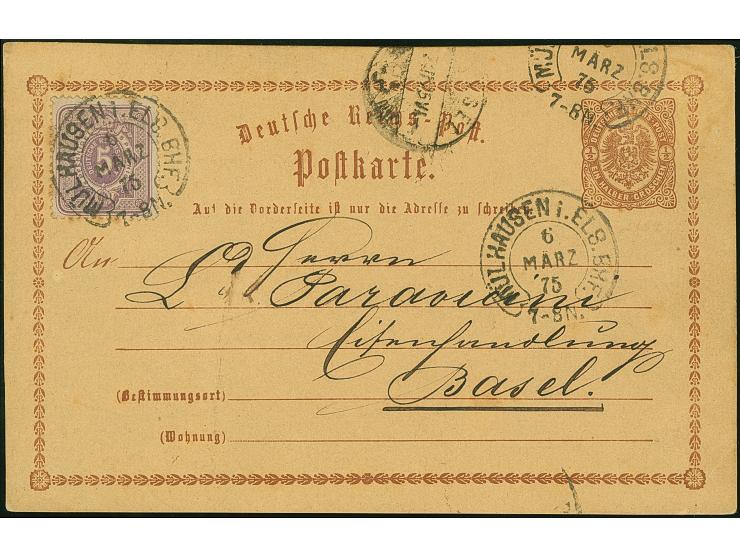 MÜL
MÄRZ
75
7-8N.
Deutsche Reichs-Post.
Postkarte.
Auf die Vorderseite ist nur die Adresse zu schreiben.
DEUTSCHE REICHS-POST
½ ½
EIN HALBER GROSCHEN
5
MÜLHAUSEN i. ELS. BHF.
6
MÄRZ
75
7-8N.
MÜLHAUSEN i. ELS. BHF.
6
MÄRZ
'75
7-8N.
An Herrn
L. Paravicini
Eisenhandlung
(Bestimmungsort) Basel.
(Wohnung)